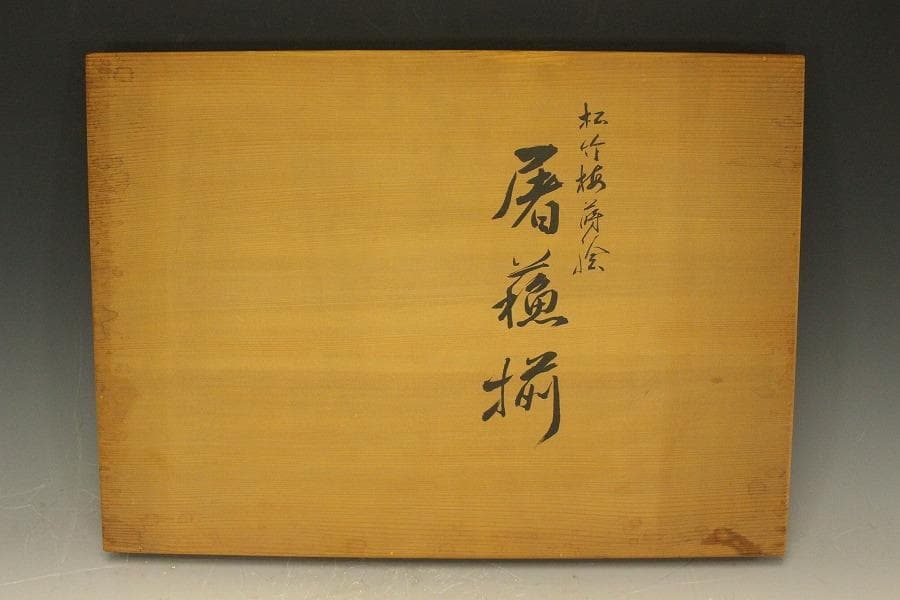 松竹梅蒔絵
屠蘇揃